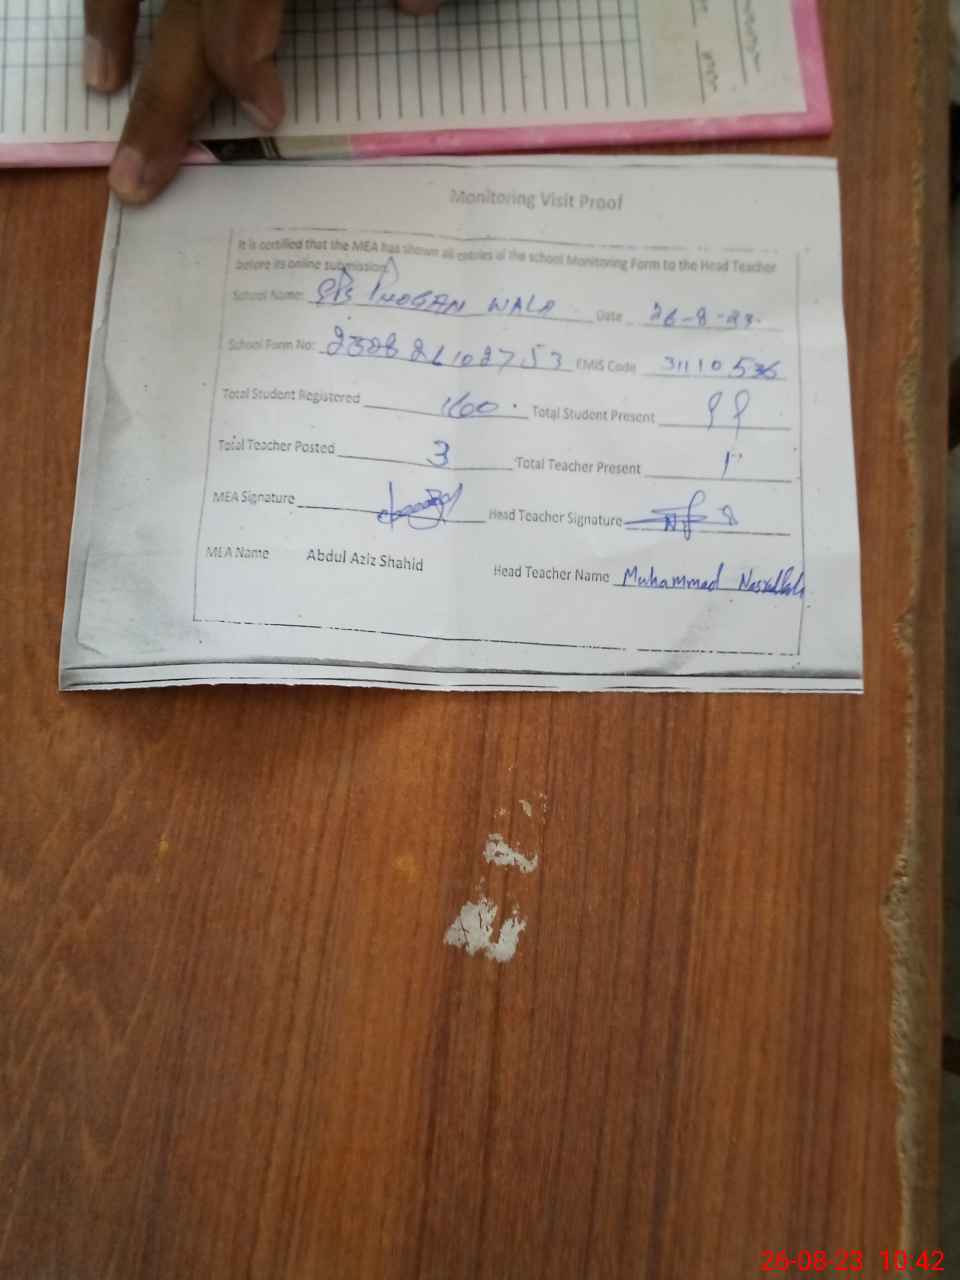 Monitoring Visit Proof
It is certified that the MEA has shown all entries of the school Monitoring Form to the Head Teacher
before its online submission.
School Name: GPS WALA Date 26-8-23.
School Form No: 2308 26102753 EMIS Code 31110536
Total Student Registered 160 Total Student Present 99
Total Teacher Posted 3 Total Teacher Present 1
MEA Signature Head Teacher Signature
MEA Name Abdul Aziz Shahid Head Teacher Name Muhammad Nasrullah
26-08-23 10:42